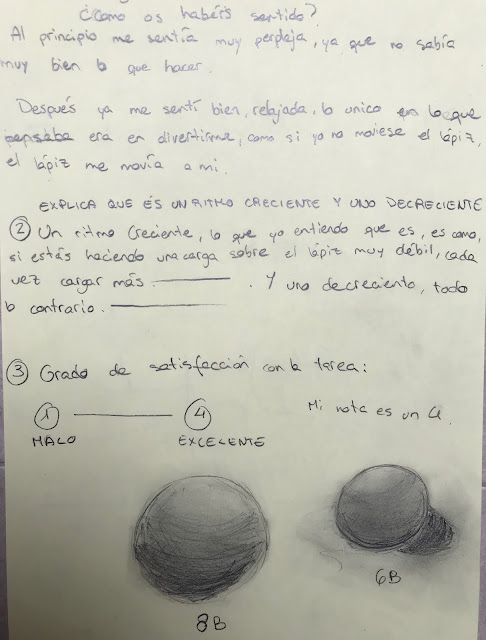 ¿Como os habéis sentido?
Al principio me sentía muy perpleja, ya que no sabía
muy bien lo que hacer.
Después ya me sentí bien, relajada, lo unico en lo que
pensaba era en divertirme, como si yo no moviese el lápiz,
el lápiz me movía a mi.
EXPLICA QUE ES UN RITMO CRECIENTE Y UNO DECRECIENTE
② Un ritmo Creciente, lo que yo entiendo que es, es como,
si estás haciendo una carga sobre el lápiz muy débil, cada
vez cargar más ———. Y uno decreciento, todo
lo contrario. ———
③ Grado de satisfacción con la tarea:
① ——— ④ Mi nota es un 4.
MALO EXCELENTE
6B
8B